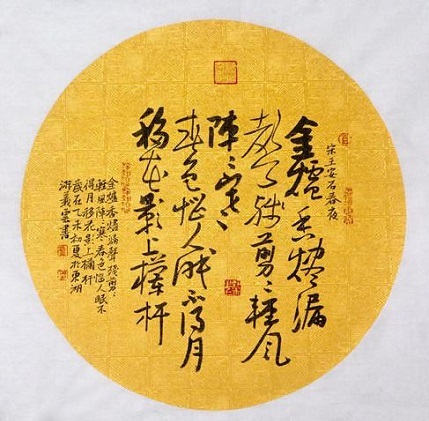 宋王安石春夜
金爐香燼漏
聲殘剪〻輕風
陣〻寒
春色惱人眠不得月
移花影上欄杆
金爐香燼漏聲殘剪〻
輕風陣〻寒春色惱人眠不
得月移花影上欄杆
歲在乙未初夏於東湖
游義雲書